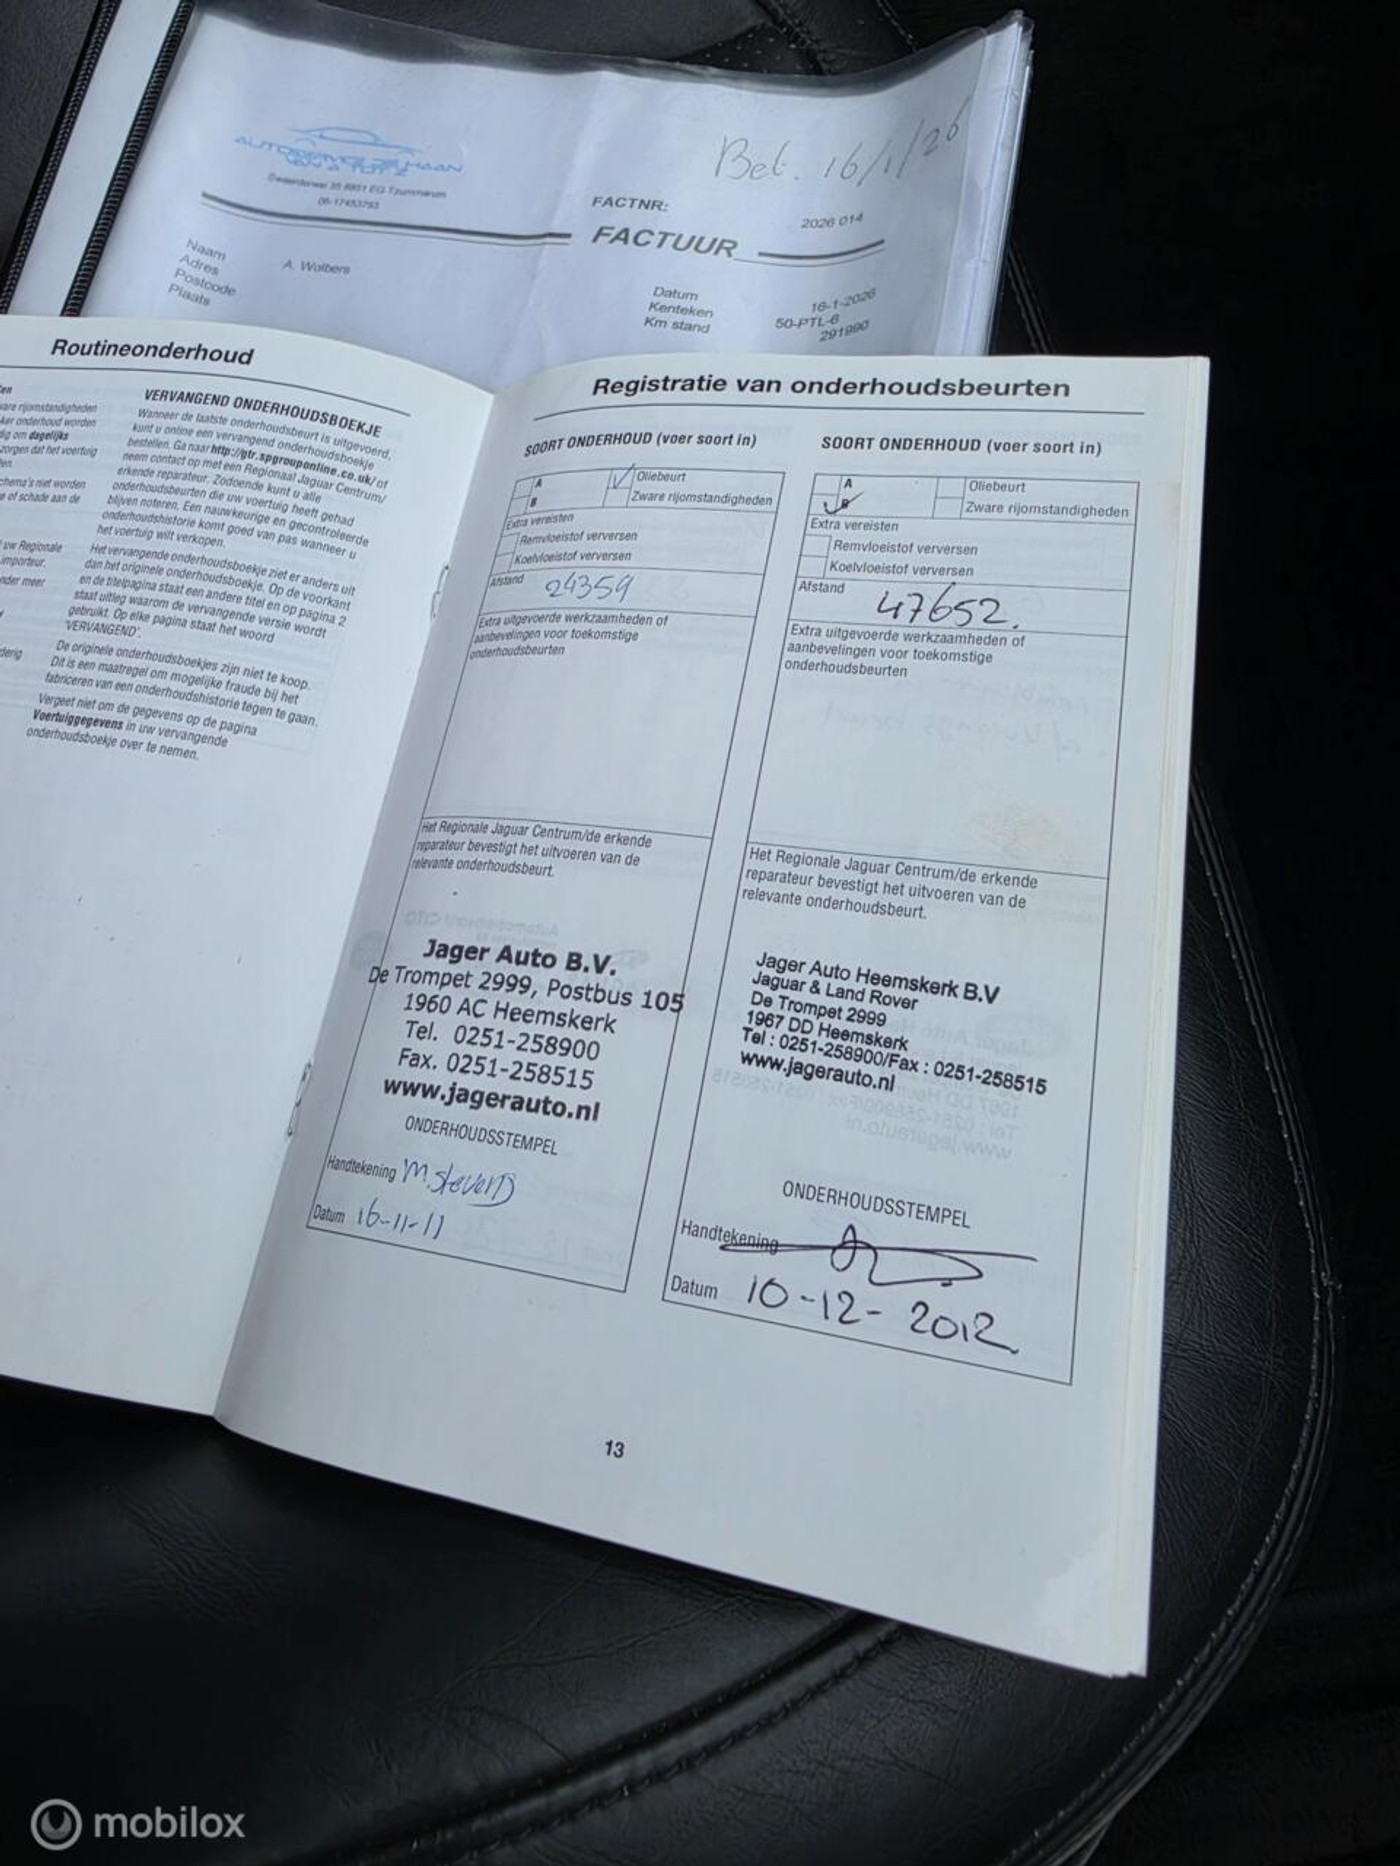 Bet. 16/1/26
FACTNR:
2026 014
FACTUUR
Naam
A. Wolbers
Adres
Postcode
Plaats
Datum
16-1-2026
Kenteken
50-PTL-6
Km stand
291990
Routineonderhoud
VERVANGEND ONDERHOUDSBOEKJE
Wanneer de laatste onderhoudsbeurt is uitgevoerd,
kunt u online een vervangend onderhoudsboekje
bestellen. Ga naar http://gtr.spgrouponline.co.uk/ of
neem contact op met een Regionaal Jaguar Centrum/
erkende reparateur. Zodoende kunt u alle
onderhoudsbeurten die uw voertuig heeft gehad
blijven noteren. Een nauwkeurige en gecontroleerde
onderhoudshistorie komt goed van pas wanneer u
het voertuig wilt verkopen.
Het vervangende onderhoudsboekje ziet er anders uit
dan het originele onderhoudsboekje. Op de voorkant
en de titelpagina staat een andere titel en op pagina 2
staat uitleg waarom de vervangende versie wordt
gebruikt. Op elke pagina staat het woord
'VERVANGEND'.
De originele onderhoudsboekjes zijn niet te koop.
Dit is een maatregel om mogelijke fraude bij het
fabriceren van een onderhoudshistorie tegen te gaan.
Vergeet niet om de gegevens op de pagina
Voertuiggegevens in uw vervangende
onderhoudsboekje over te nemen.
Registratie van onderhoudsbeurten
SOORT ONDERHOUD (voer soort in)
A
Oliebeurt
B
Zware rijomstandigheden
Extra vereisten
Remvloeistof verversen
Koelvloeistof verversen
Afstand 24359
Extra uitgevoerde werkzaamheden of
aanbevelingen voor toekomstige
onderhoudsbeurten
Het Regionale Jaguar Centrum/de erkende
reparateur bevestigt het uitvoeren van de
relevante onderhoudsbeurt.
Jager Auto B.V.
De Trompet 2999, Postbus 105
1960 AC Heemskerk
Tel. 0251-258900
Fax. 0251-258515
www.jagerauto.nl
ONDERHOUDSSTEMPEL
Handtekening M. Stevens
Datum 16-11-11
SOORT ONDERHOUD (voer soort in)
A
Oliebeurt
B
Zware rijomstandigheden
Extra vereisten
Remvloeistof verversen
Koelvloeistof verversen
Afstand 47652.
Extra uitgevoerde werkzaamheden of
aanbevelingen voor toekomstige
onderhoudsbeurten
Het Regionale Jaguar Centrum/de erkende
reparateur bevestigt het uitvoeren van de
relevante onderhoudsbeurt.
Jager Auto Heemskerk B.V
Jaguar & Land Rover
De Trompet 2999
1967 DD Heemskerk
Tel : 0251-258900/Fax : 0251-258515
www.jagerauto.nl
ONDERHOUDSSTEMPEL
Handtekening
Datum 10-12-2012
13
mobilox